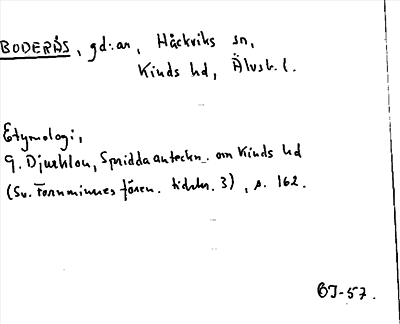 BODERÅS, gd:ar, Håckviks sn,
Kinds hd, Älvsb. l.
Etymologi,
G. Djurklou, Spridda anteckn. om Kinds hd
(Sv. Fornminnesfören. tidskr. 3), s. 162.
BJ-57.